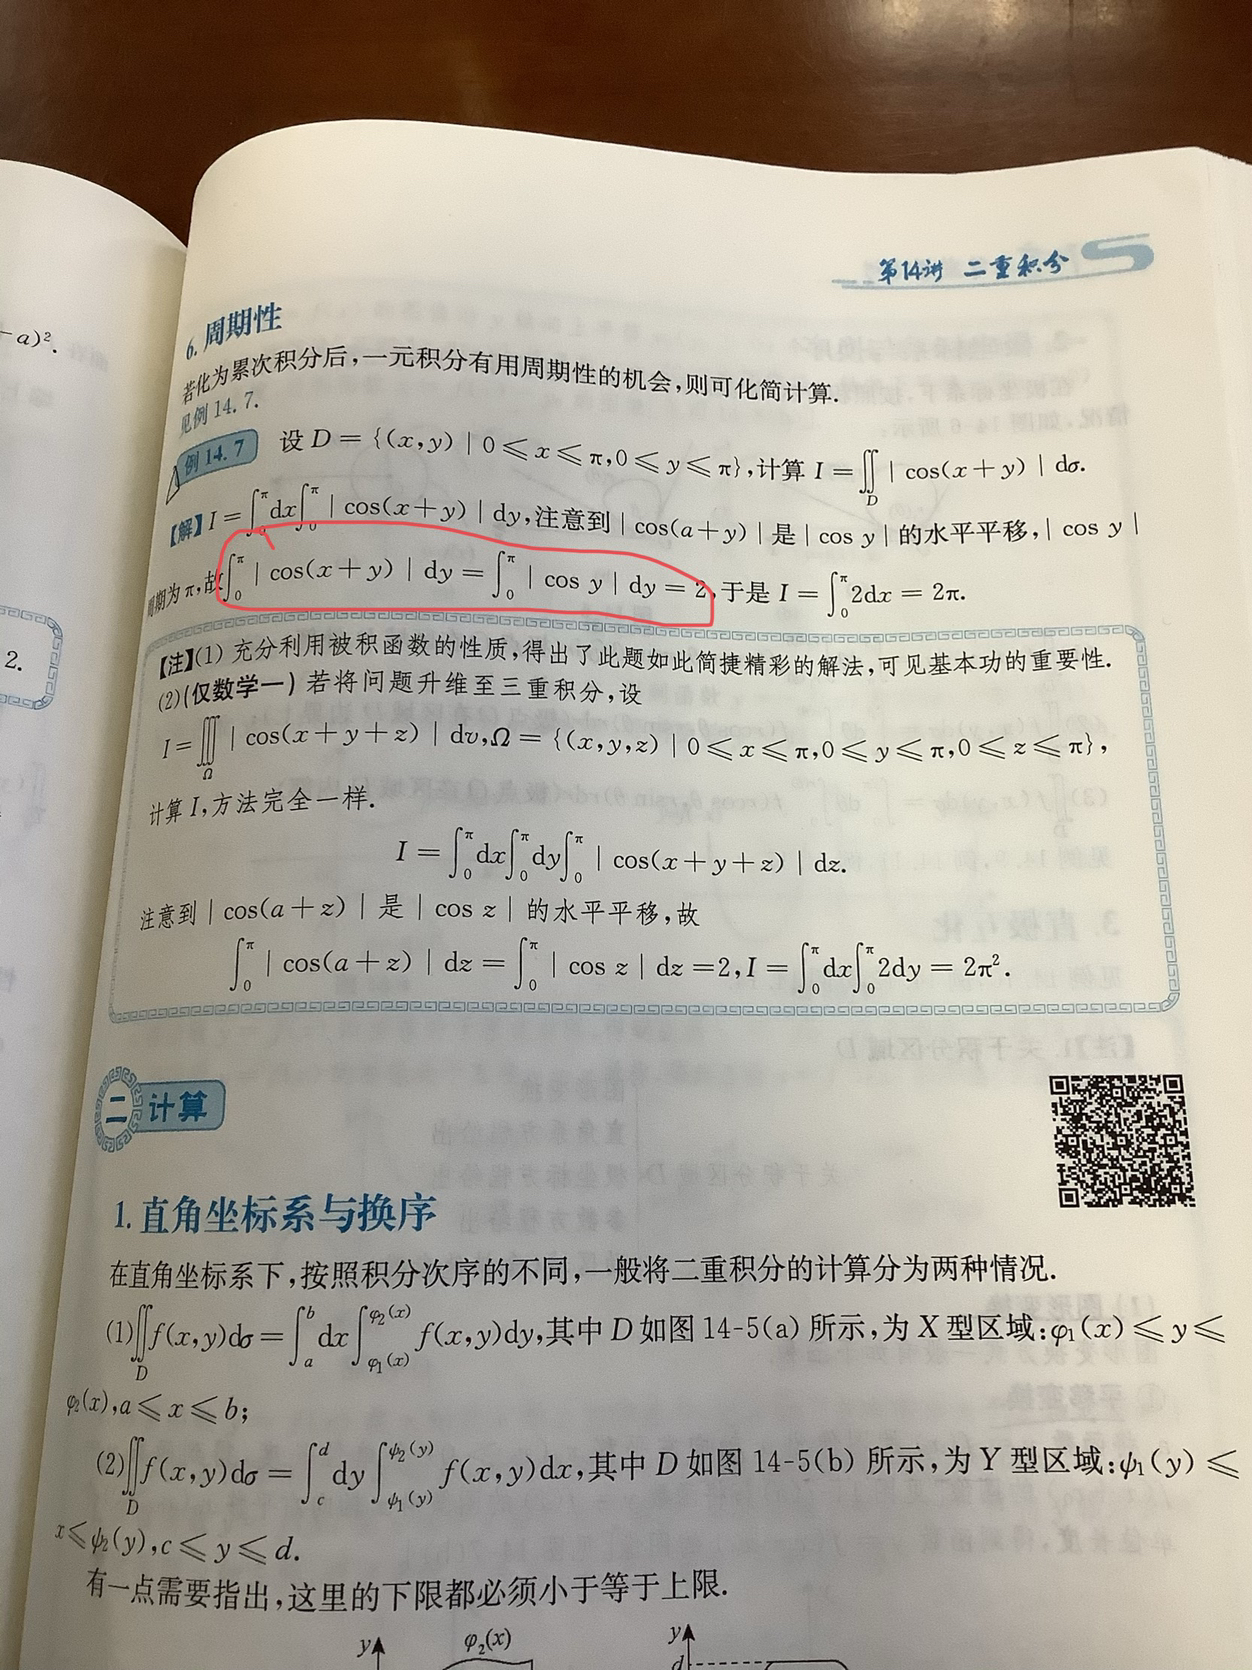 -a)².
2.
第14讲 二重积分
6. 周期性
若化为累次积分后,一元积分有用周期性的机会,则可化简计算.
见例 14.7.
例 14.7 设 D = {(x,y) | 0 ⩽ x ⩽ π,0 ⩽ y ⩽ π},计算 I = ∬_D | cos(x+y) | dσ.
【解】I = ∫₀^π dx∫₀^π | cos(x+y) | dy,注意到 | cos(a+y) | 是 | cos y | 的水平平移, | cos y |
周期为 π,故∫₀^π | cos(x+y) | dy = ∫₀^π | cos y | dy = 2,于是 I = ∫₀^π 2dx = 2π.
【注】(1) 充分利用被积函数的性质,得出了此题如此简捷精彩的解法,可见基本功的重要性.
(2)(仅数学一) 若将问题升维至三重积分,设
I = ∭_Ω | cos(x+y+z) | dv,Ω = {(x,y,z) | 0 ⩽ x ⩽ π,0 ⩽ y ⩽ π,0 ⩽ z ⩽ π},
计算 I,方法完全一样.
I = ∫₀^π dx∫₀^π dy∫₀^π | cos(x+y+z) | dz.
注意到 | cos(a+z) | 是 | cos z | 的水平平移,故
∫₀^π | cos(a+z) | dz = ∫₀^π | cos z | dz =2,I = ∫₀^π dx∫₀^π 2dy = 2π².
二 计算
1. 直角坐标系与换序
在直角坐标系下,按照积分次序的不同,一般将二重积分的计算分为两种情况.
(1)∬_D f(x,y)dσ = ∫_a^b dx∫_{φ₁(x)}^{φ₂(x)} f(x,y)dy,其中 D 如图 14-5(a) 所示,为 X 型区域:φ₁(x) ⩽ y ⩽
φ₂(x),a ⩽ x ⩽ b;
(2)∬_D f(x,y)dσ = ∫_c^d dy∫_{ψ₁(y)}^{ψ₂(y)} f(x,y)dx,其中 D 如图 14-5(b) 所示,为 Y 型区域:ψ₁(y) ⩽
x ⩽ ψ₂(y),c ⩽ y ⩽ d.
有一点需要指出,这里的下限都必须小于等于上限.
y φ₂(x) y
d